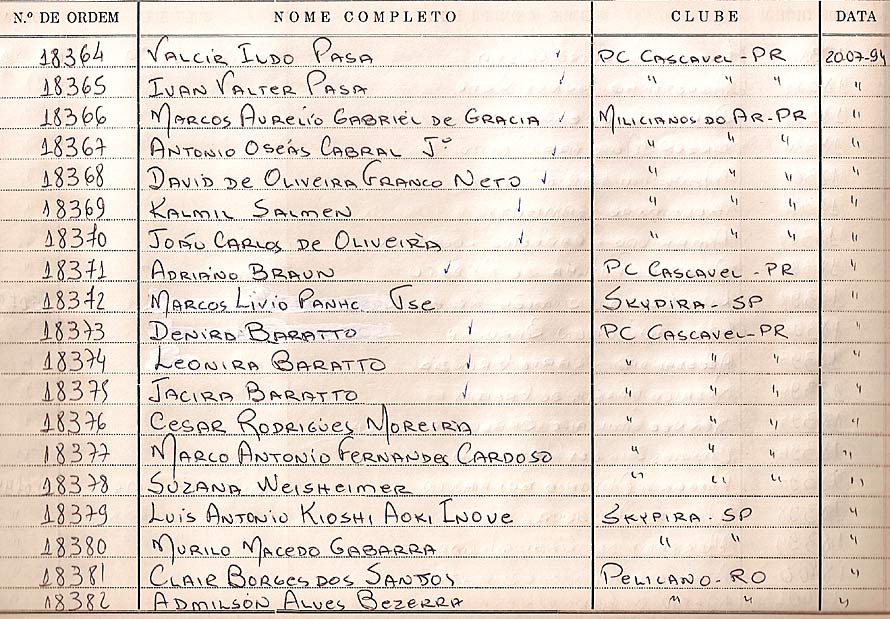 N.º DE ORDEM NOME COMPLETO CLUBE DATA
18364 VALCIR ILDO PASA PC CASCAVEL - PR 20.07-94
18365 IVAN VALTER PASA " " " "
18366 MARCOS AURELÍO GABRIEL DE GRACIA MILICIANOS DO AR-PR "
18367 ANTONIO OSEÁS CABRAL Jº " " " "
18368 DAVID DE OLIVEIRA FRANCO NETO " " " "
18369 KALMIL SALMEN " " " "
18370 JOÃO CARLOS DE OLIVEIRA " " " "
18371 ADRIANO BRAUN PC CASCAVEL - PR "
18372 MARCOS LIVIO SKYPIRA - SP "
18373 BARATTO PC CASCAVEL-PR "
18374 LEONIRA BARATTO " " " "
18375 JACIRA BARATTO " " " "
18376 CESAR RODRIGUES MOREIRA " " " "
18377 MARCO ANTONIO FERNANDES CARDOSO " " " "
18378 SUZANA WEISHEIMER " " " "
18379 LUIS ANTONIO KIOSHI AOKI INOUE SKYPIRA - SP "
18380 MURILO MACEDO GABARRA " " "
18381 CLAIR BORGES DOS SANTOS PELICANO - RO "
18382 ADMILSON ALVES BEZERRA " " "